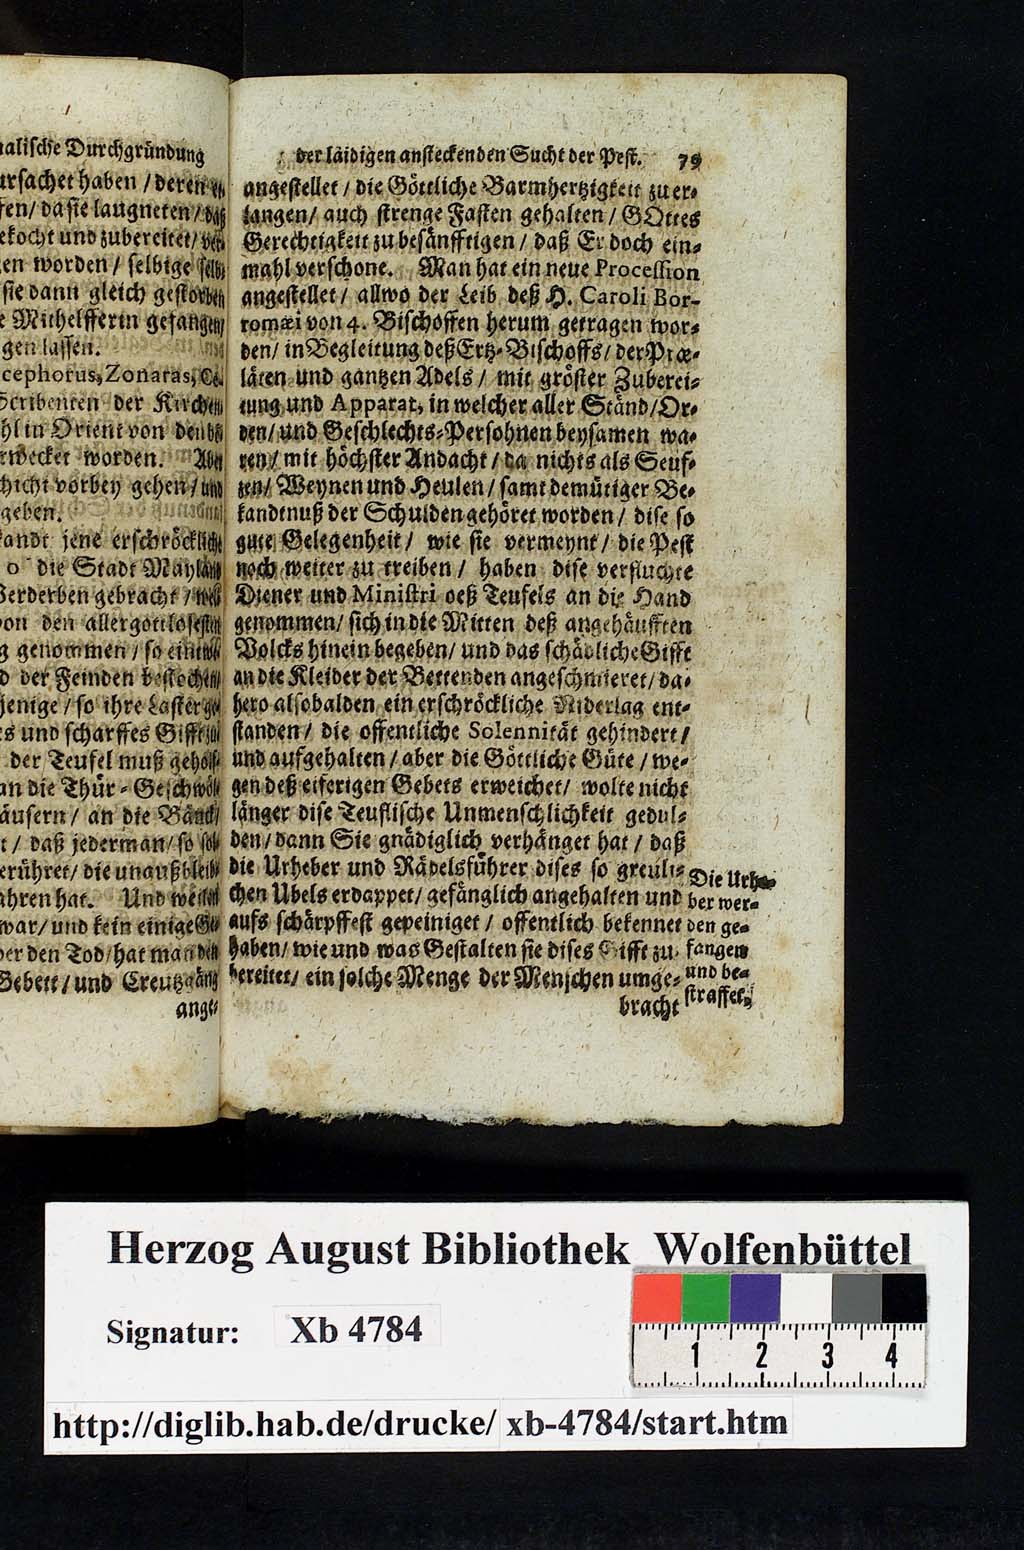 alische Durchgründung
ursachet haben / deren
fen / da sie laugneten / daß
ekocht und zubereitet / ver-
en worden / selbige selbs
sie dann gleich gestorben
e Mithelfferin gefangen
gen lassen.
cephorus, Zonaras, Ce-
Scribenten der Kirchen
hl in Orient von den
rwecket worden. Aber
hicht vorbey gehen / und
geben.
kandt jene erschröckliche
o die Stadt Mayland
Verderben gebracht /
von den allergottlosesten
g genommen / so ein
d der Feinden bestochen
jenige / so ihre Laster
es und scharffes Gifft
der Teufel muß geholf-
an die Thür-Geschwöll
äusern / an die Bänck
t / daß jederman / so sol-
erühret / die unaußbleib-
ahren hat. Und weilen
war / und kein einige
er den Tod / hat man den
Gebett / und Creutzgäng
ange-
der läidigen ansteckenden Sucht der Pest. 79
angestellet / die Göttliche Barmhertzigkeit zu er-
langen / auch strenge Fasten gehalten / GOttes
Gerechtigkeit zu besänfftigen / daß Er doch ein-
mahl verschone. Man hat ein neue Procession
angestellet / allwo der Leib deß H. Caroli Bor-
romæi von 4. Bischoffen herum getragen wor-
den / in Begleitung deß Ertz-Bischoffs / der Præ-
läten und gantzen Adels / mit gröster Zuberei-
tung und Apparat, in welcher aller Ständ / Or-
den / und Geschlechts-Persohnen beysamen wa-
ren / mit höchster Andacht / da nichts als Seuf-
zen / Weynen und Heulen / samt demütiger Be-
kandtnuß der Schulden gehöret worden / dise so
gute Gelegenheit / wie sie vermeynt / die Pest
noch weiter zu treiben / haben dise verfluchte
Diener und Ministri deß Teufels an die Hand
genommen / sich in die Mitten deß angehäufften
Volcks hinein begeben / und das schädliche Gifft
an die Kleider der Bettenden angeschmieret / da-
hero alsobalden ein erschröckliche Niderlag ent-
standen / die offentliche Solennität gehindert /
und aufgehalten / aber die Göttliche Güte / we-
gen deß eiferigen Gebets erweichet / wolte nicht
länger dise Teuflische Unmenschlichkeit gedul-
den / dann Sie gnädiglich verhänget hat / daß
die Urheber und Rädelsführer dises so greuli-
chen Ubels erdappet / gefänglich angehalten und
aufs schärpffest gepeiniget / offentlich bekennet
haben / wie und was Gestalten sie dises Gifft zu-
bereitet / ein solche Menge der Menschen umge-
bracht
Die Urhe-
ber wer-
den ge-
fangen
und be-
straffet.
Herzog August Bibliothek Wolfenbüttel
Signatur: Xb 4784
1 2 3 4
http://diglib.hab.de/drucke/ xb-4784/start.htm